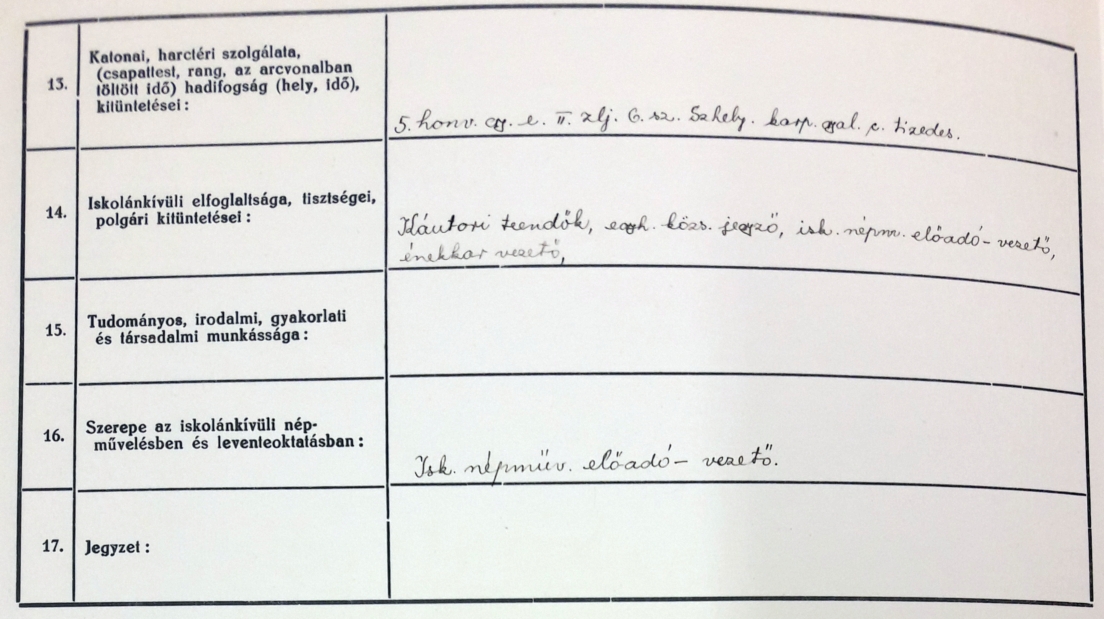 13. Katonai, harctéri szolgálata,
(csapattest, rang, az arcvonalban
töltött idő) hadifogság (hely, idő),
kitüntetései:
5. honv. gy. e. II. zlj. 6. sz. Szhely. karp. gal. c. tizedes.
14. Iskolánkívüli elfoglaltsága, tisztségei,
polgári kitüntetései:
Kántori teendők, egyh. közs. jegyző, isk. népm. előadó-vezető,
énekkar vezető,
15. Tudományos, irodalmi, gyakorlati
és társadalmi munkássága:
16. Szerepe az iskolánkívüli nép-
művelésben és leventeoktatásban:
Isk. népműv. előadó- vezető.
17. Jegyzet: